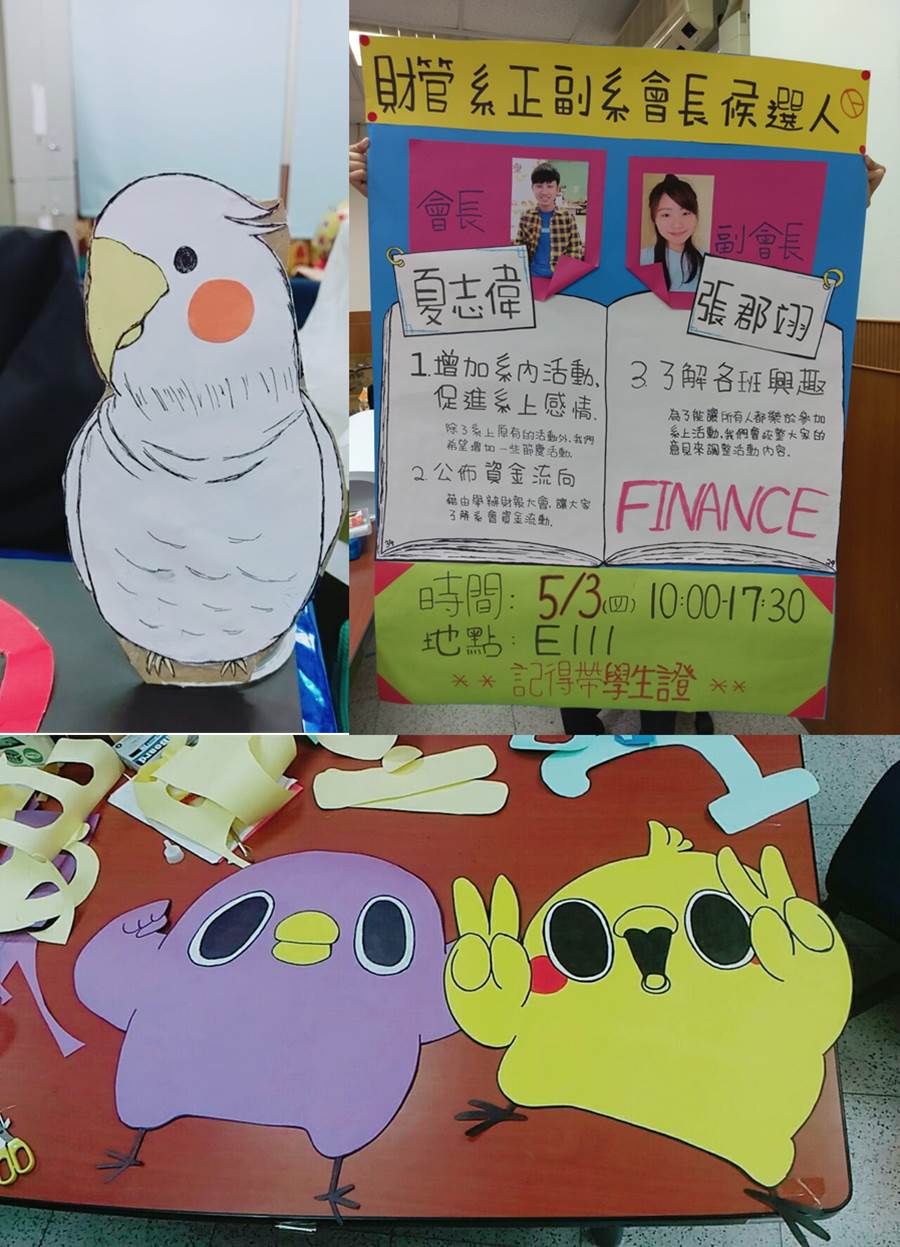 財管系正副系會長候選人
會長
副會長
夏志偉
張郡翊
1.增加系內活動,
促進系上感情.
除了系上原有的活動外,我們
希望增加一些節慶活動.
2.公佈資金流向
藉由學辦財報大會,讓大家
了解系會資金流動.
3.了解各班興趣
為了能讓所有人都樂於參加
系上活動,我們會統整大家的
意見來調整活動內容.
FINANCE
時間: 5/3(四) 10:00-17:30
地點: E111
** 記得帶學生證 **